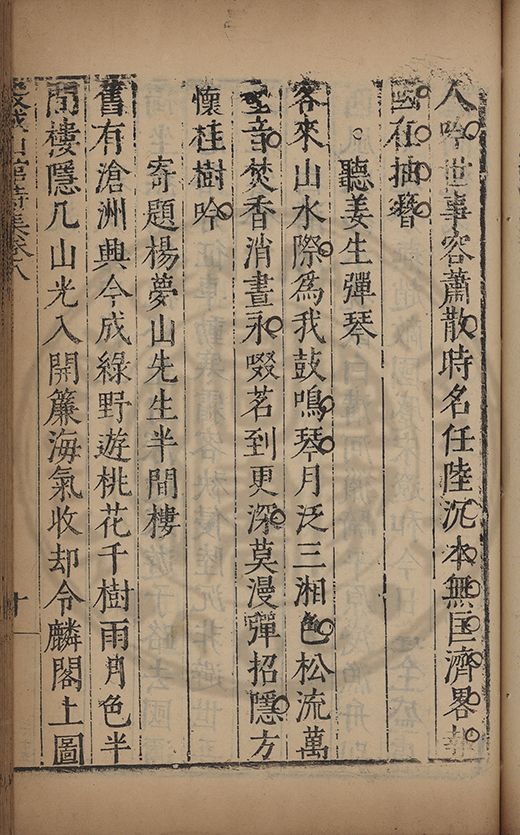 人吟世事容蕭散時名任陸沉本無匡濟畧報
國在抽簪
聽姜生彈琴
客來山水際爲我鼓鳴琴月泛三湘色松流萬
壑音焚香消晝永啜茗到更深莫漫彈招隱方
懷桂樹吟
寄題楊夢山先生半間樓
舊有滄洲興今成綠野遊桃花千樹雨月色半
間樓隱几山光入開簾海氣收却令麟閣上圖
山館詩集卷八
十